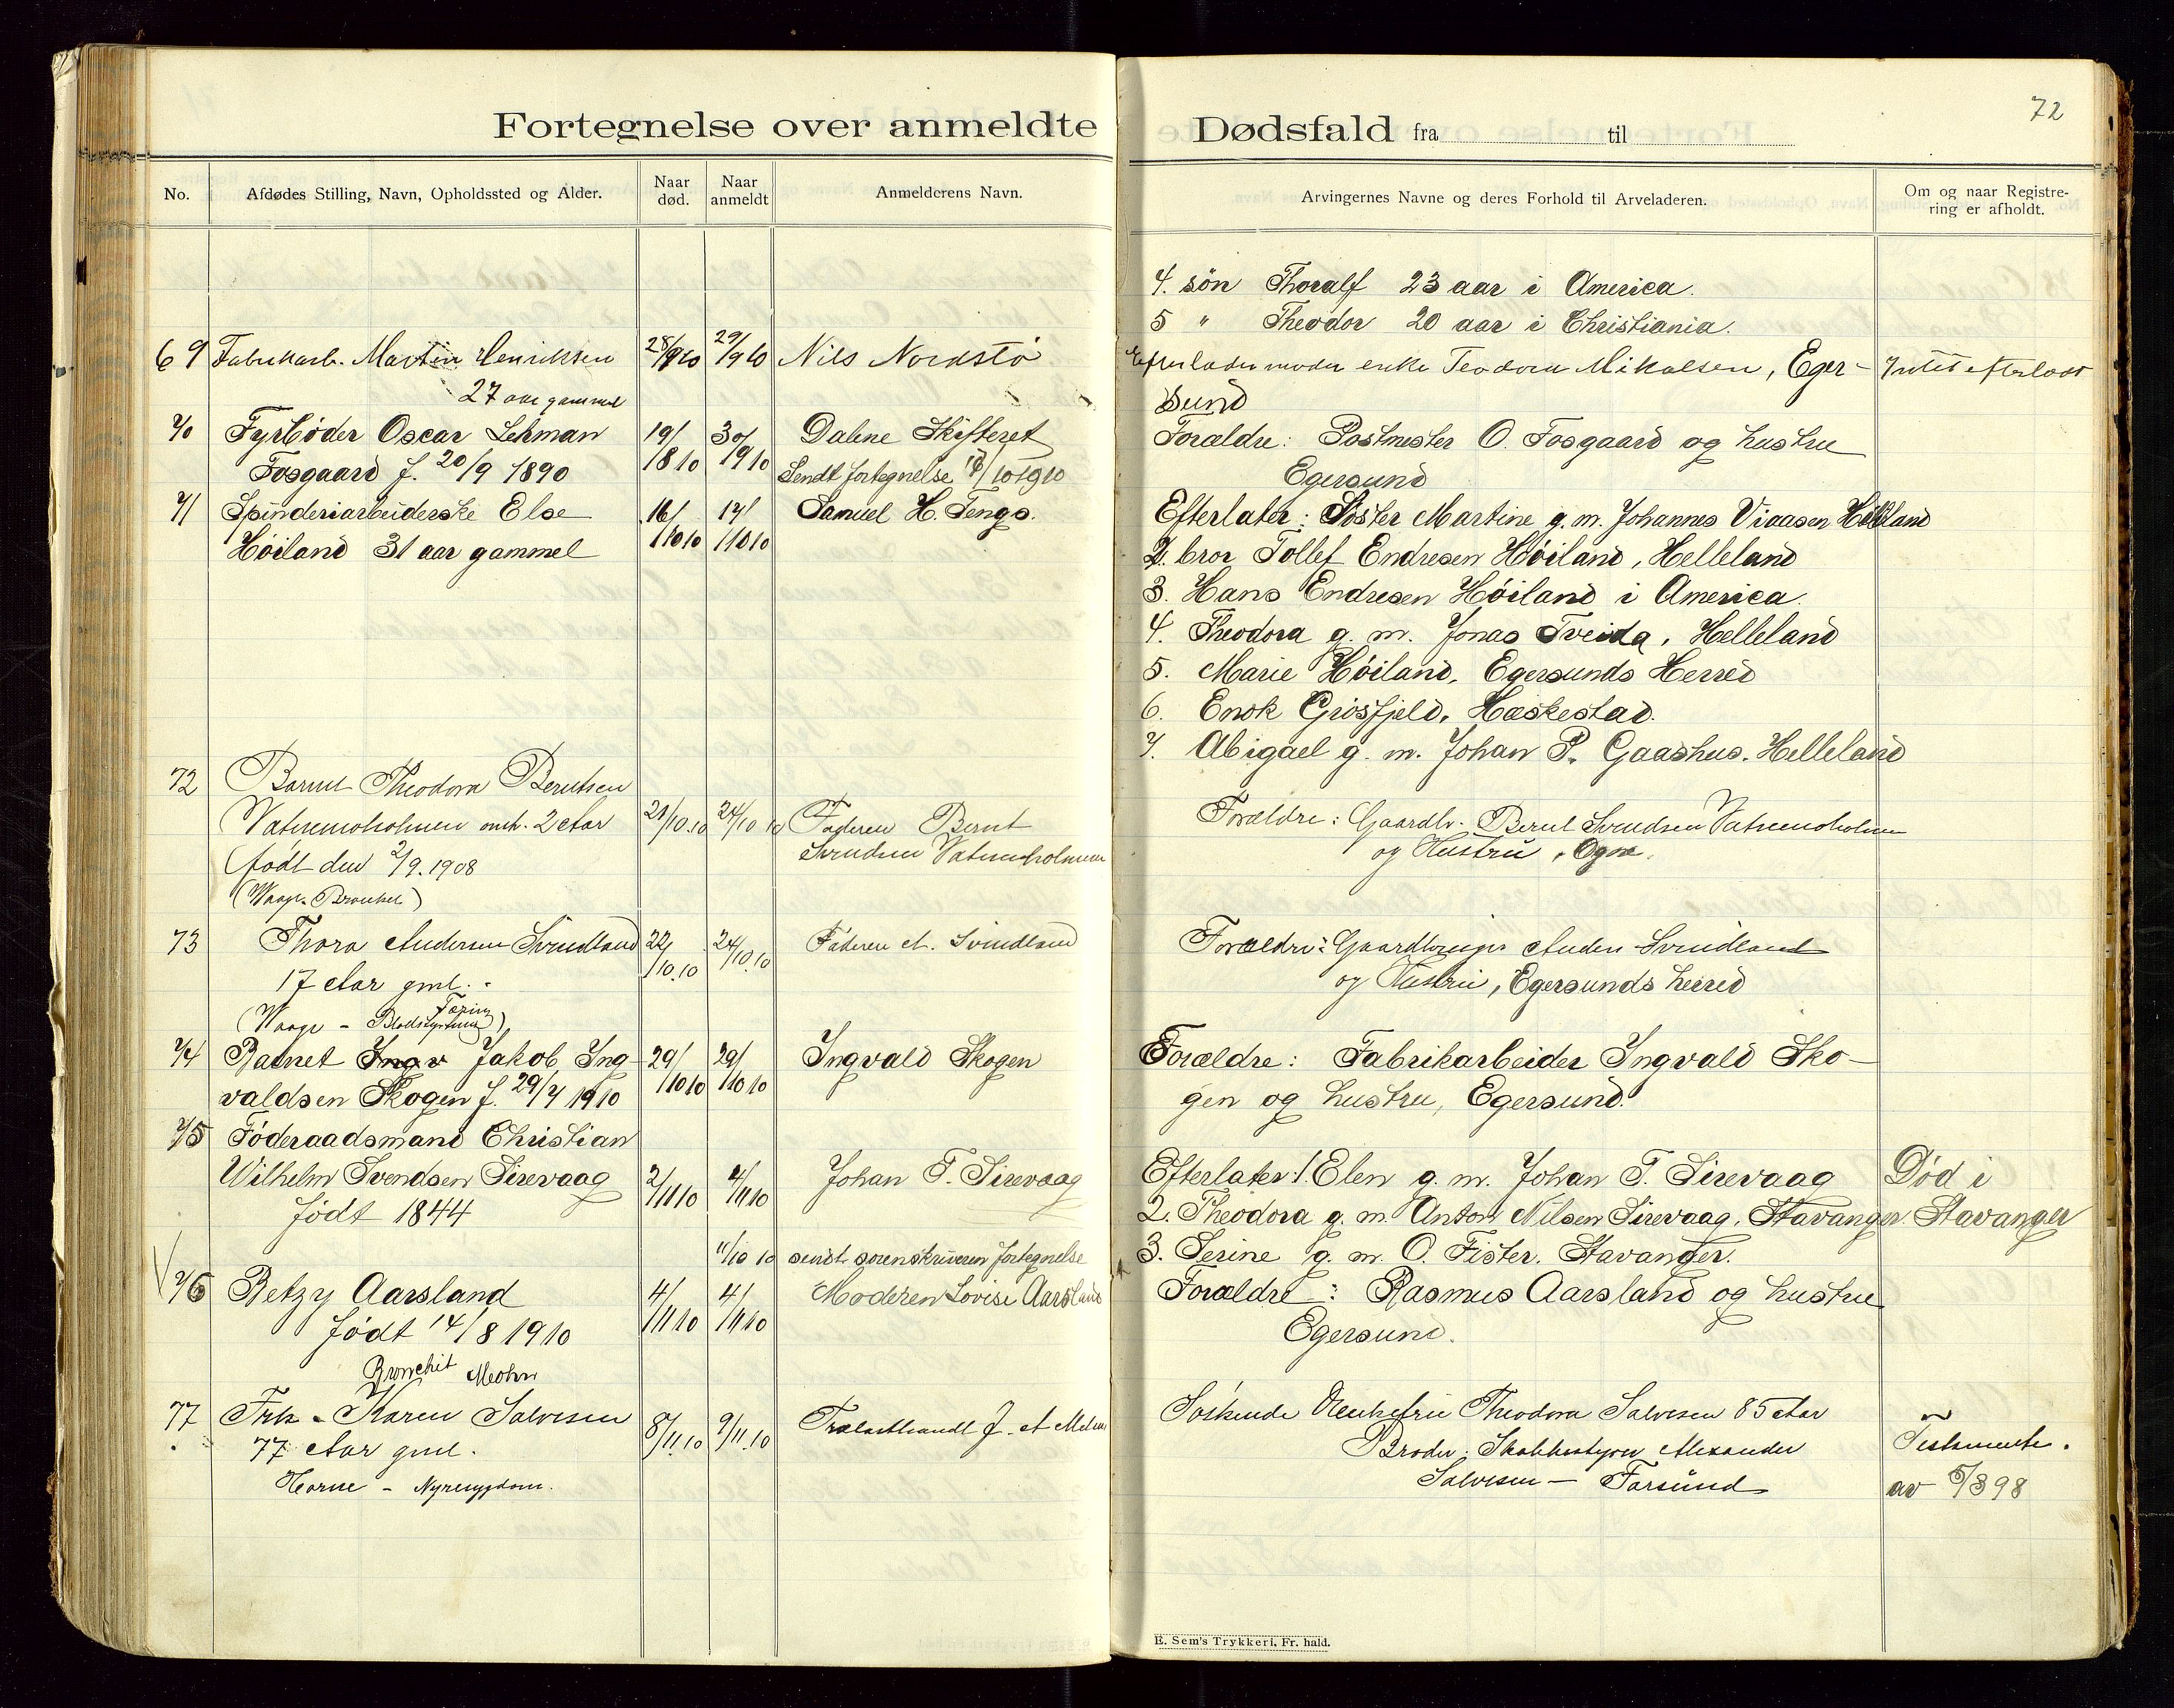 72
Fortegnelse over anmeldte Dødsfald fra til
No.
Afdødes Stilling, Navn, Opholdssted og Alder.
Naar død.
Naar anmeldt
Anmelderens Navn.
Arvingernes Navne og deres Forhold til Arveladeren.
Om og naar Registrering er afholdt.
4. søn Thoralf 23 aar i America.
5 " Theodor 20 aar i Christiania.
69 Fabrikarb. Martin Henriksen 28/9 10 29/9 10 Nils Nordstö
27 aar gammel
Efterlader moder enke Teodora Mikalsen, Eger-
sund
Intet efterladt
70 Fyrbøder Oscar Lehman 19/8 10 30/9 10 Dalene Skifteret
Fosgaard f. 20/9 1890 Sendt fortegnelse /10 1910
Forældre: Postmester O. Fosgaard og hustru
Egersund
71 Spinderiarbeiderske Else 16/10 10 17/10 10 Samuel H. Tengs.
Høiland 31 aar gammel
Efterlater: Søster Martine g. m. Johannes Viaasen Helleland
2. bror Tollef Endresen Høiland, Helleland
3. Hans Endresen Høiland i America.
4. Theodora g. m. Jonas Tveida, Helleland
5. Marie Høiland, Egersunds Herred
6. Enok Grøsfjeld, Hæskestad.
7. Abigael g. m. Johan P. Gaashus. Helleland
72 Barnet Theodora Berntsen
Vatnemoholmen omtr. 2 Aar 21/10.10 24/10 10 Faderen Bernt
født den 2/9. 1908 Svendsen Vatnemoholmen
(Waage. Bronchit)
Forældre: Gaardbr. Bernt Svendsen Vatnemoholmen
og Hustru, Ogne.
73 Thora Andersen Svindland 22/10.10 24/10.10 Faderen A. Svindland
17 Aar gml.
(Waage - Blodstyrtning)
Tæring
Forældre: Gaardbruger Anders Svindland
og Hustru, Egersunds herred
74 Barnet Ingv Jakob Ing- 29/10 10 29/10 10 Ingvald Skogen
valdsen Skogen f. 29/7 1910
Forældre: Fabrikarbeider Ingvald Sko-
gen og hustru, Egersund.
75 Föderaadsmand Christian
Wilhelm Svendsen Sirevaag 2/11 10 4/11 10 Johan T. Sirevaag
født 1844
11/10 10 sendt sorenskriveren fortegnelse
Efterlater: 1. Elen g. m. Johan T. Sirevaag
2. Theodora g. m. Anton Nilsen Sirevaag, Stavanger
3. Serine g. m. O. Fister. Stavanger.
Død i
Stavanger
76 Betzy Aarsland 4/11 10 4/11 10 Moderen Lovise Aarsland
født 14/8 1910
Bronchit Meohn
Forældre: Rasmus Aarsland og hustru
Egersund.
77 Frk. Karen Salvesen 8/11.10 9/11.10 Trælasthandl J. A
77 Aar gml.
Horne - Nyresygdom.
Söskende Enkefru Theodora Salvesen 85 Aar
Broder: Skibbestyrer Alexander
Salvesen - Farsund
Testamente.
av 5/3 98
E. Sem's Trykkeri, Fr. hald.